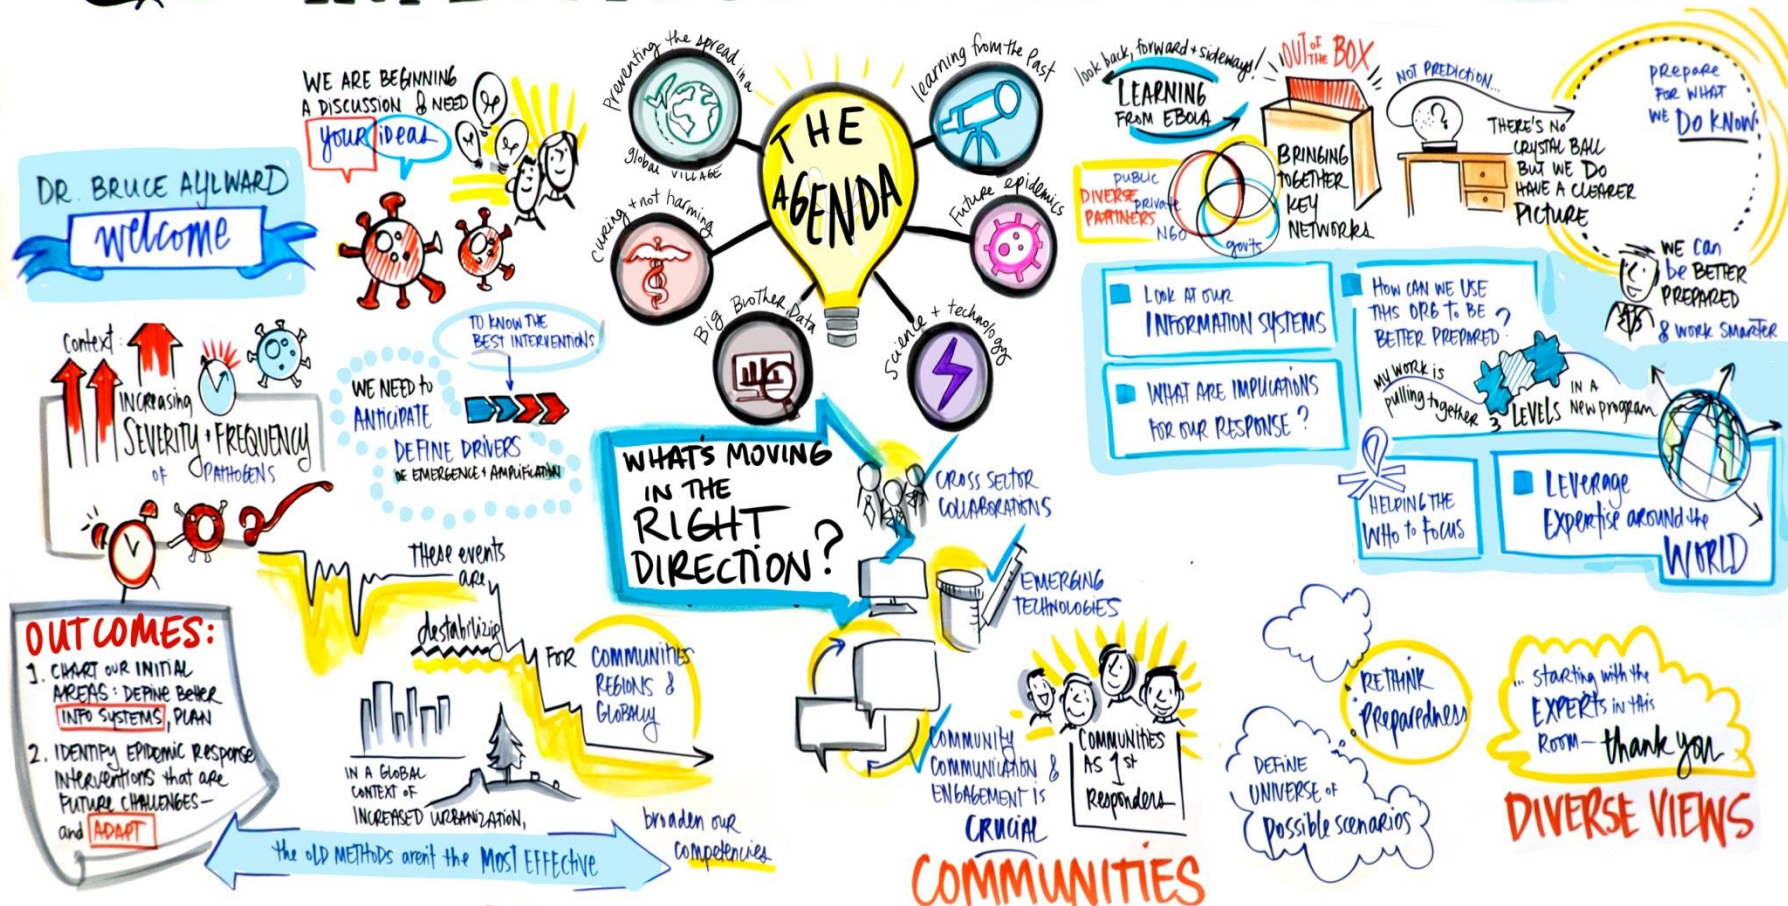 DR. BRUCE AYLWARD
welcome
WE ARE BEGINNING
A DISCUSSION & NEED
your ideas
Context:
INCREASING
SEVERITY + FREQUENCY
OF PATHOGENS
TO KNOW THE
BEST INTERVENTIONS
WE NEED to
ANTICIPATE
DEFINE DRIVERS
OF EMERGENCE + AMPLIFICATION
OUTCOMES:
1. CHART OUR INITIAL
AREAS: DEFINE Better
INFO SYSTEMS, PLAN
2. IDENTIFY EPIDEMIC Response
INTERVENTIONS that are
FUTURE CHALLENGES—
and ADAPT
These events
are
destabilizing
FOR COMMUNITIES
REGIONS &
GLOBALLY
IN A GLOBAL
CONTEXT OF
INCREASED URBANIZATION,
the OLD METHODS aren't the MOST EFFECTIVE
broaden our
competencies
THE
AGENDA
Preventing the spread in a
global VILLAGE
learning from the Past
curing + not harming
Future epidemics
Big Brother Data
Science + technology
WHAT'S MOVING
IN THE
RIGHT
DIRECTION?
CROSS SECTOR
COLLABORATIONS
EMERGING
TECHNOLOGIES
COMMUNITY
COMMUNICATION &
ENGAGEMENT IS
CRUCIAL
COMMUNITIES
AS 1st
Responders
COMMUNITIES
look back, forward + sideways!
LEARNING
FROM EBOLA
OUT OF THE BOX
PUBLIC
DIVERSE
PARTNERS
private
NGO
govts
BRINGING
TOGETHER
KEY
NETWORKS
NOT PREDICTION...
THERE'S NO
CRYSTAL BALL
BUT WE DO
HAVE A CLEARER
PICTURE
PREPARE
FOR WHAT
WE DO KNOW.
WE can
be BETTER
PREPARED
& WORK SMARTER
LOOK AT OUR
INFORMATION SYSTEMS
WHAT ARE IMPLICATIONS
FOR OUR RESPONSE?
HOW CAN WE USE
THIS ORG TO BE
BETTER PREPARED?
MY WORK IS
pulling together
3 LEVELS
IN A
New program
HELPING THE
WHO to FOCUS
LEVERAGE
EXPERTISE around the
WORLD
RETHINK
Preparedness
DEFINE
UNIVERSE OF
Possible scenarios
... STARTING with the
EXPERTS in this
ROOM— thank you
DIVERSE VIEWS